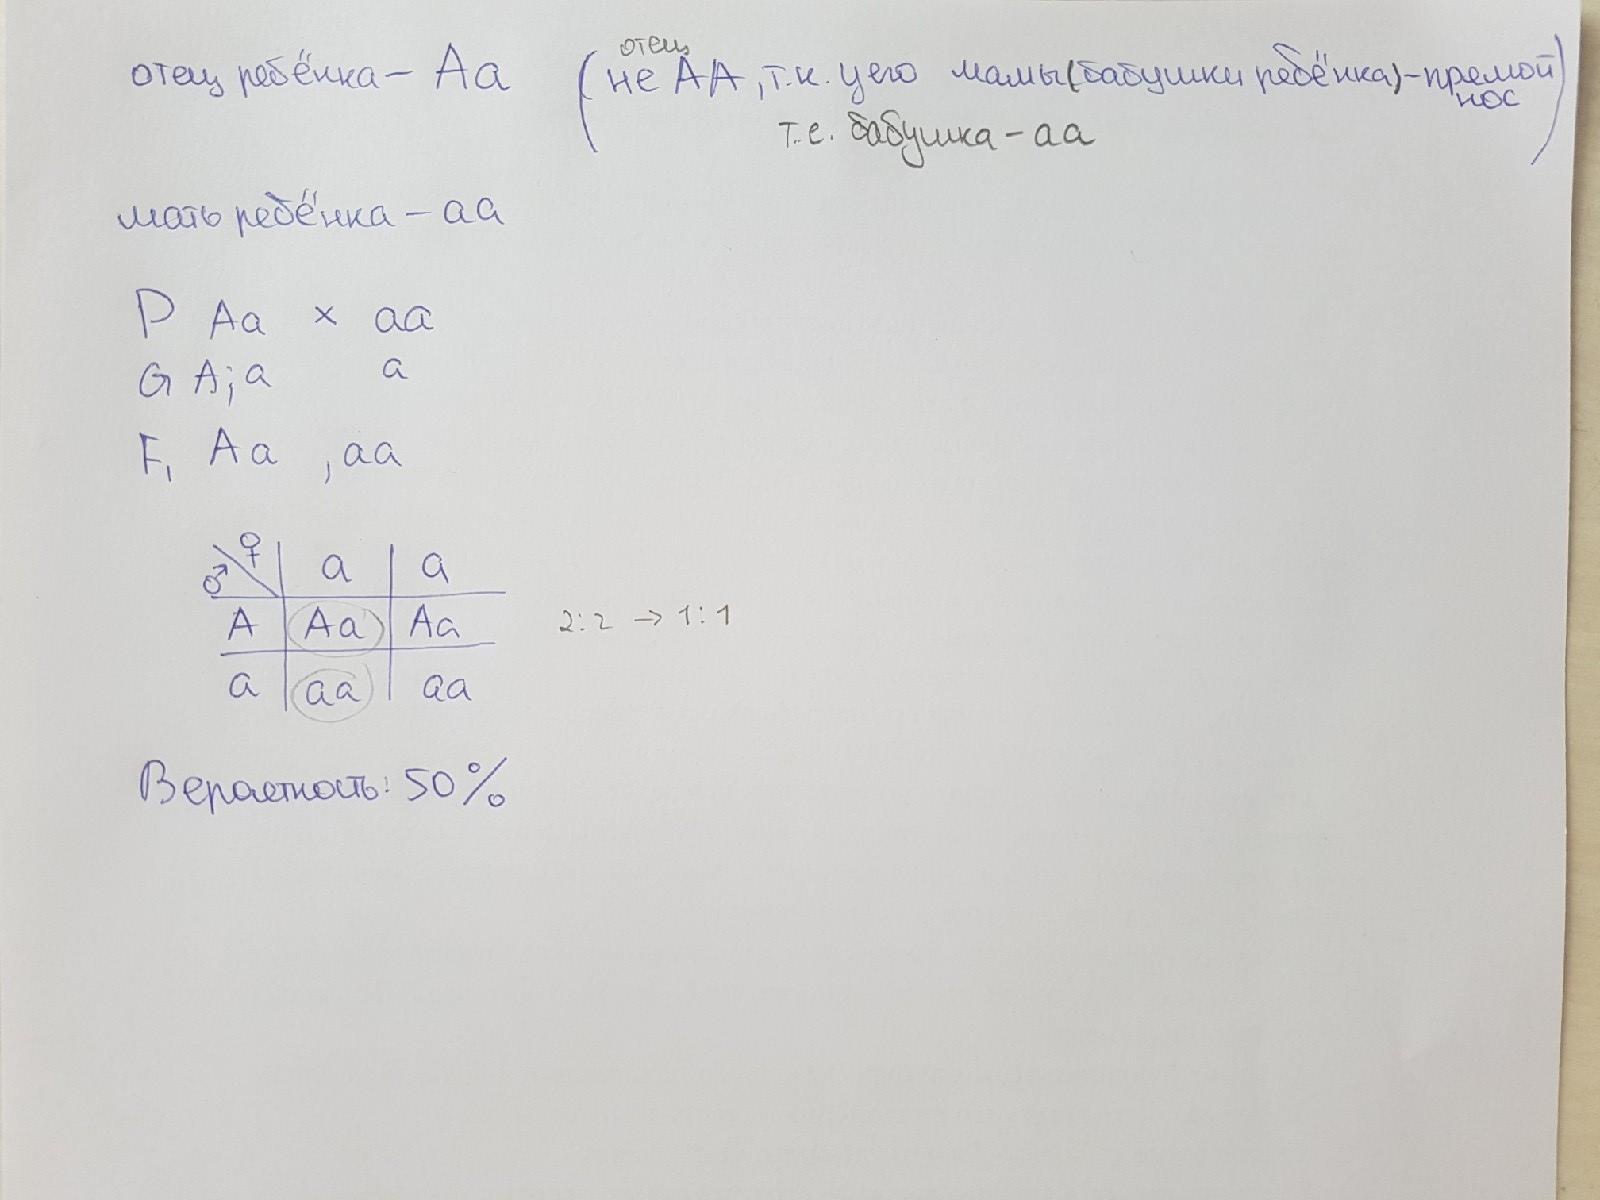 отец ребёнка – Aa (отец не AA, т.к. у его мамы (бабушки ребёнка) – премой нос
т.е. бабушка – aa)
мать ребёнка – aa
P Aa × aa
G A; a a
F₁ Aa , aa
♂ \ ♀ | a | a
A | Aa | Aa 2:2 → 1:1
a | aa | aa
Верастность: 50%